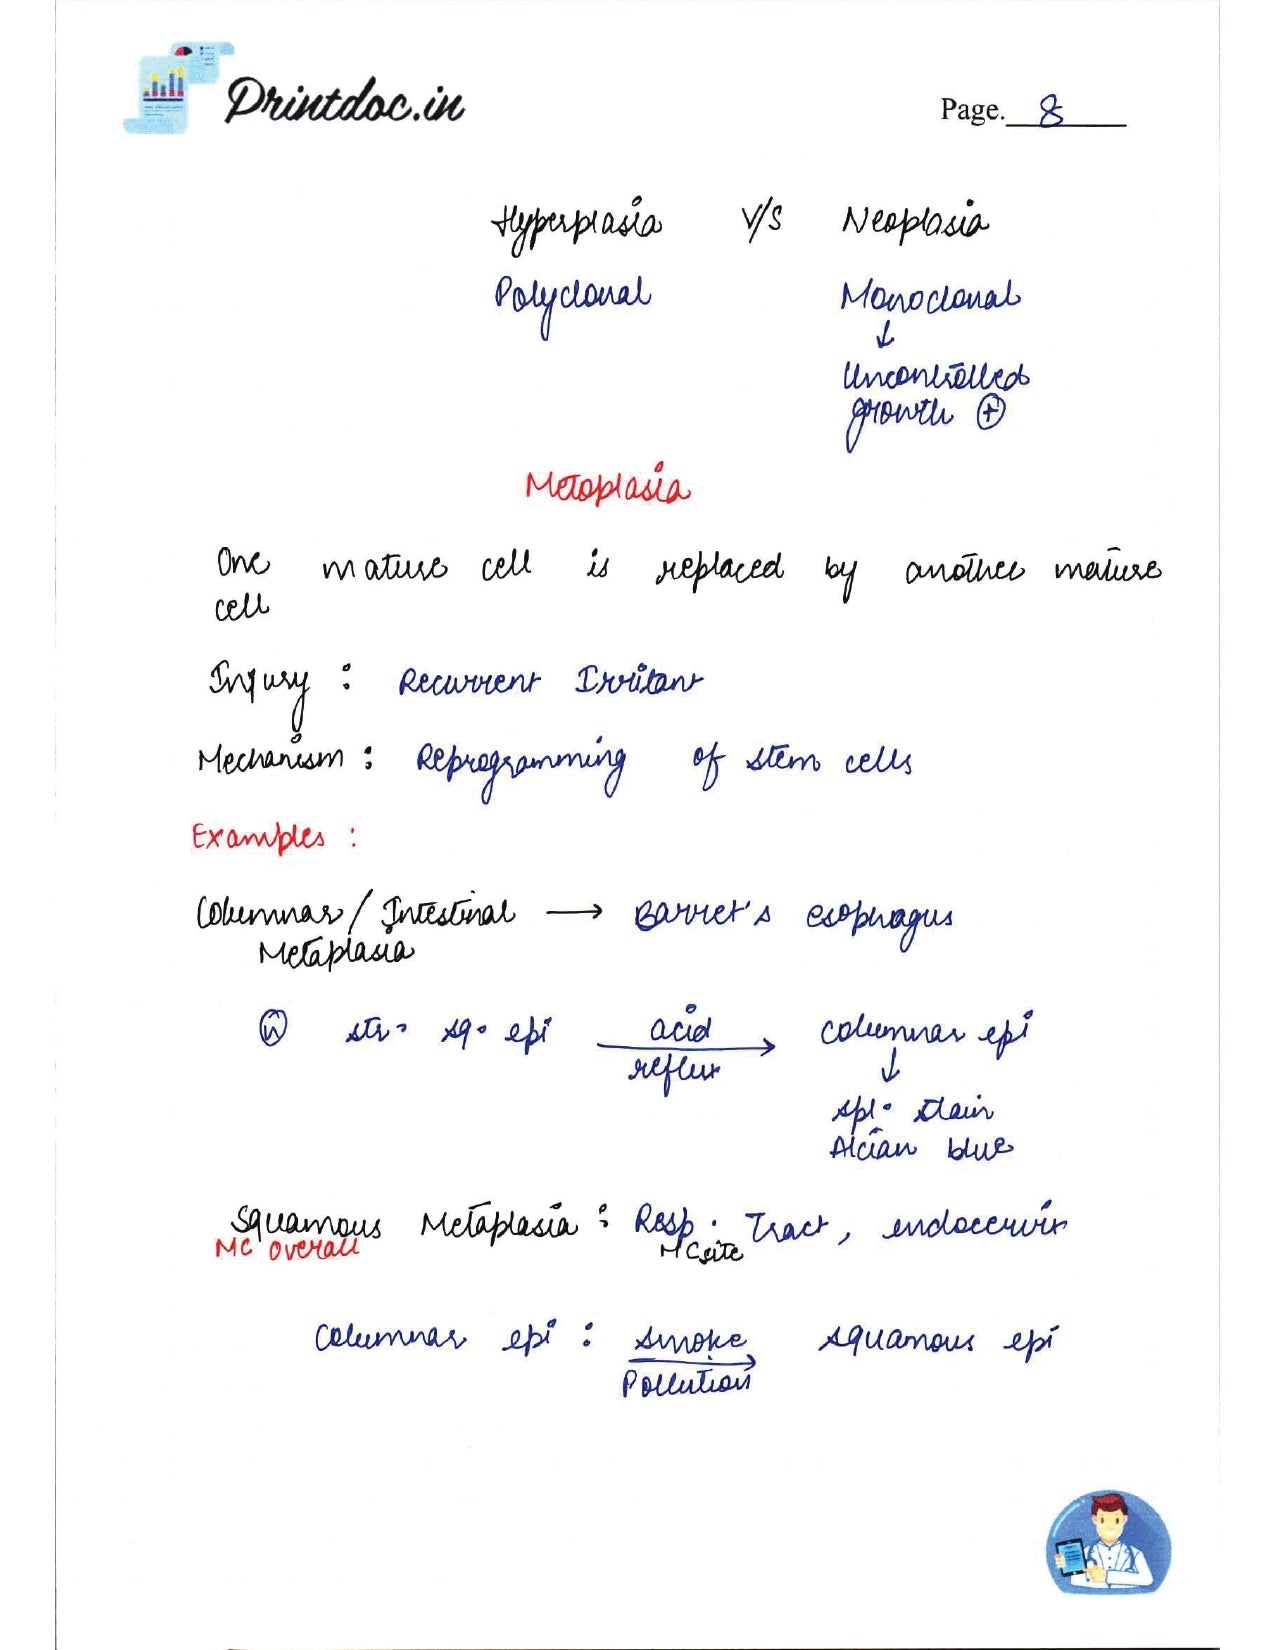 Printdoc.in
Page. 8
Hyperplasia V/S Neoplasia
Polyclonal Monoclonal
↓
Uncontrolled
growth ⊕
Metaplasia
One mature cell is replaced by another mature
cell
Injury : Recurrent Irritant
Mechanism : Reprogramming of stem cells
Examples :
Columnar / Intestinal → Barret's esophagus
Metaplasia
Ⓝ str. sq. epi acid → columnar epi
reflux ↓
spl. stain
Alcian blue
Squamous Metaplasia : Resp. Tract, endocervix
MC overall MC site
Columnar epi : smoke → squamous epi
Pollution